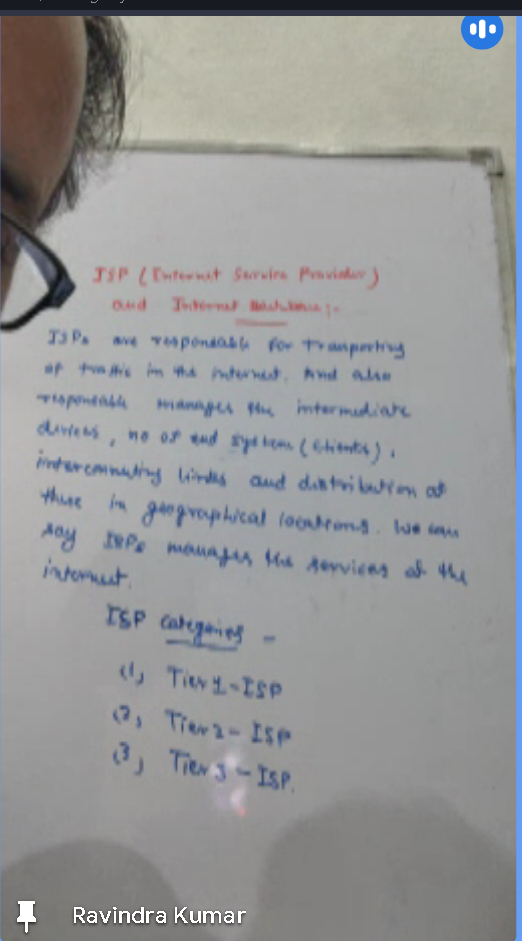 ISP (Internet Service Provider)
and Internet Backbone :-
ISPs are responsable for transporting
of traffic in the internet. And also
responsable manages the intermediate
devices, no of end system (clients),
interconnecting links and distribution of
these in geographical locations. We can
say ISPs manages the services of the
internet.
ISP Categories -
(1) Tier 1 - ISP
(2) Tier 2 - ISP
(3) Tier 3 - ISP.
Ravindra Kumar